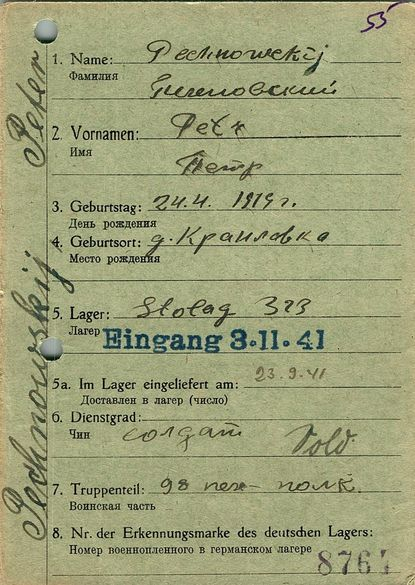 55
1. Name: Pechnowskij
Фамилия
2. Vornamen: Petr
Имя Петр
3. Geburtstag: 24.4. 1919 г.
День рождения
4. Geburtsort: д. Краиловка
Место рождения
5. Lager: Stalag 323
Лагерь
Eingang 3.11.41
5a. Im Lager eingeliefert am: 23.9.41
Доставлен в лагер (число)
6. Dienstgrad: солдат Sold.
Чин
7. Truppenteil: 98 полк.
Воинская часть
8. Nr. der Erkennungsmarke des deutschen Lagers:
Номер военнопленного в германском лагере
8767
Pechnowskij Peter